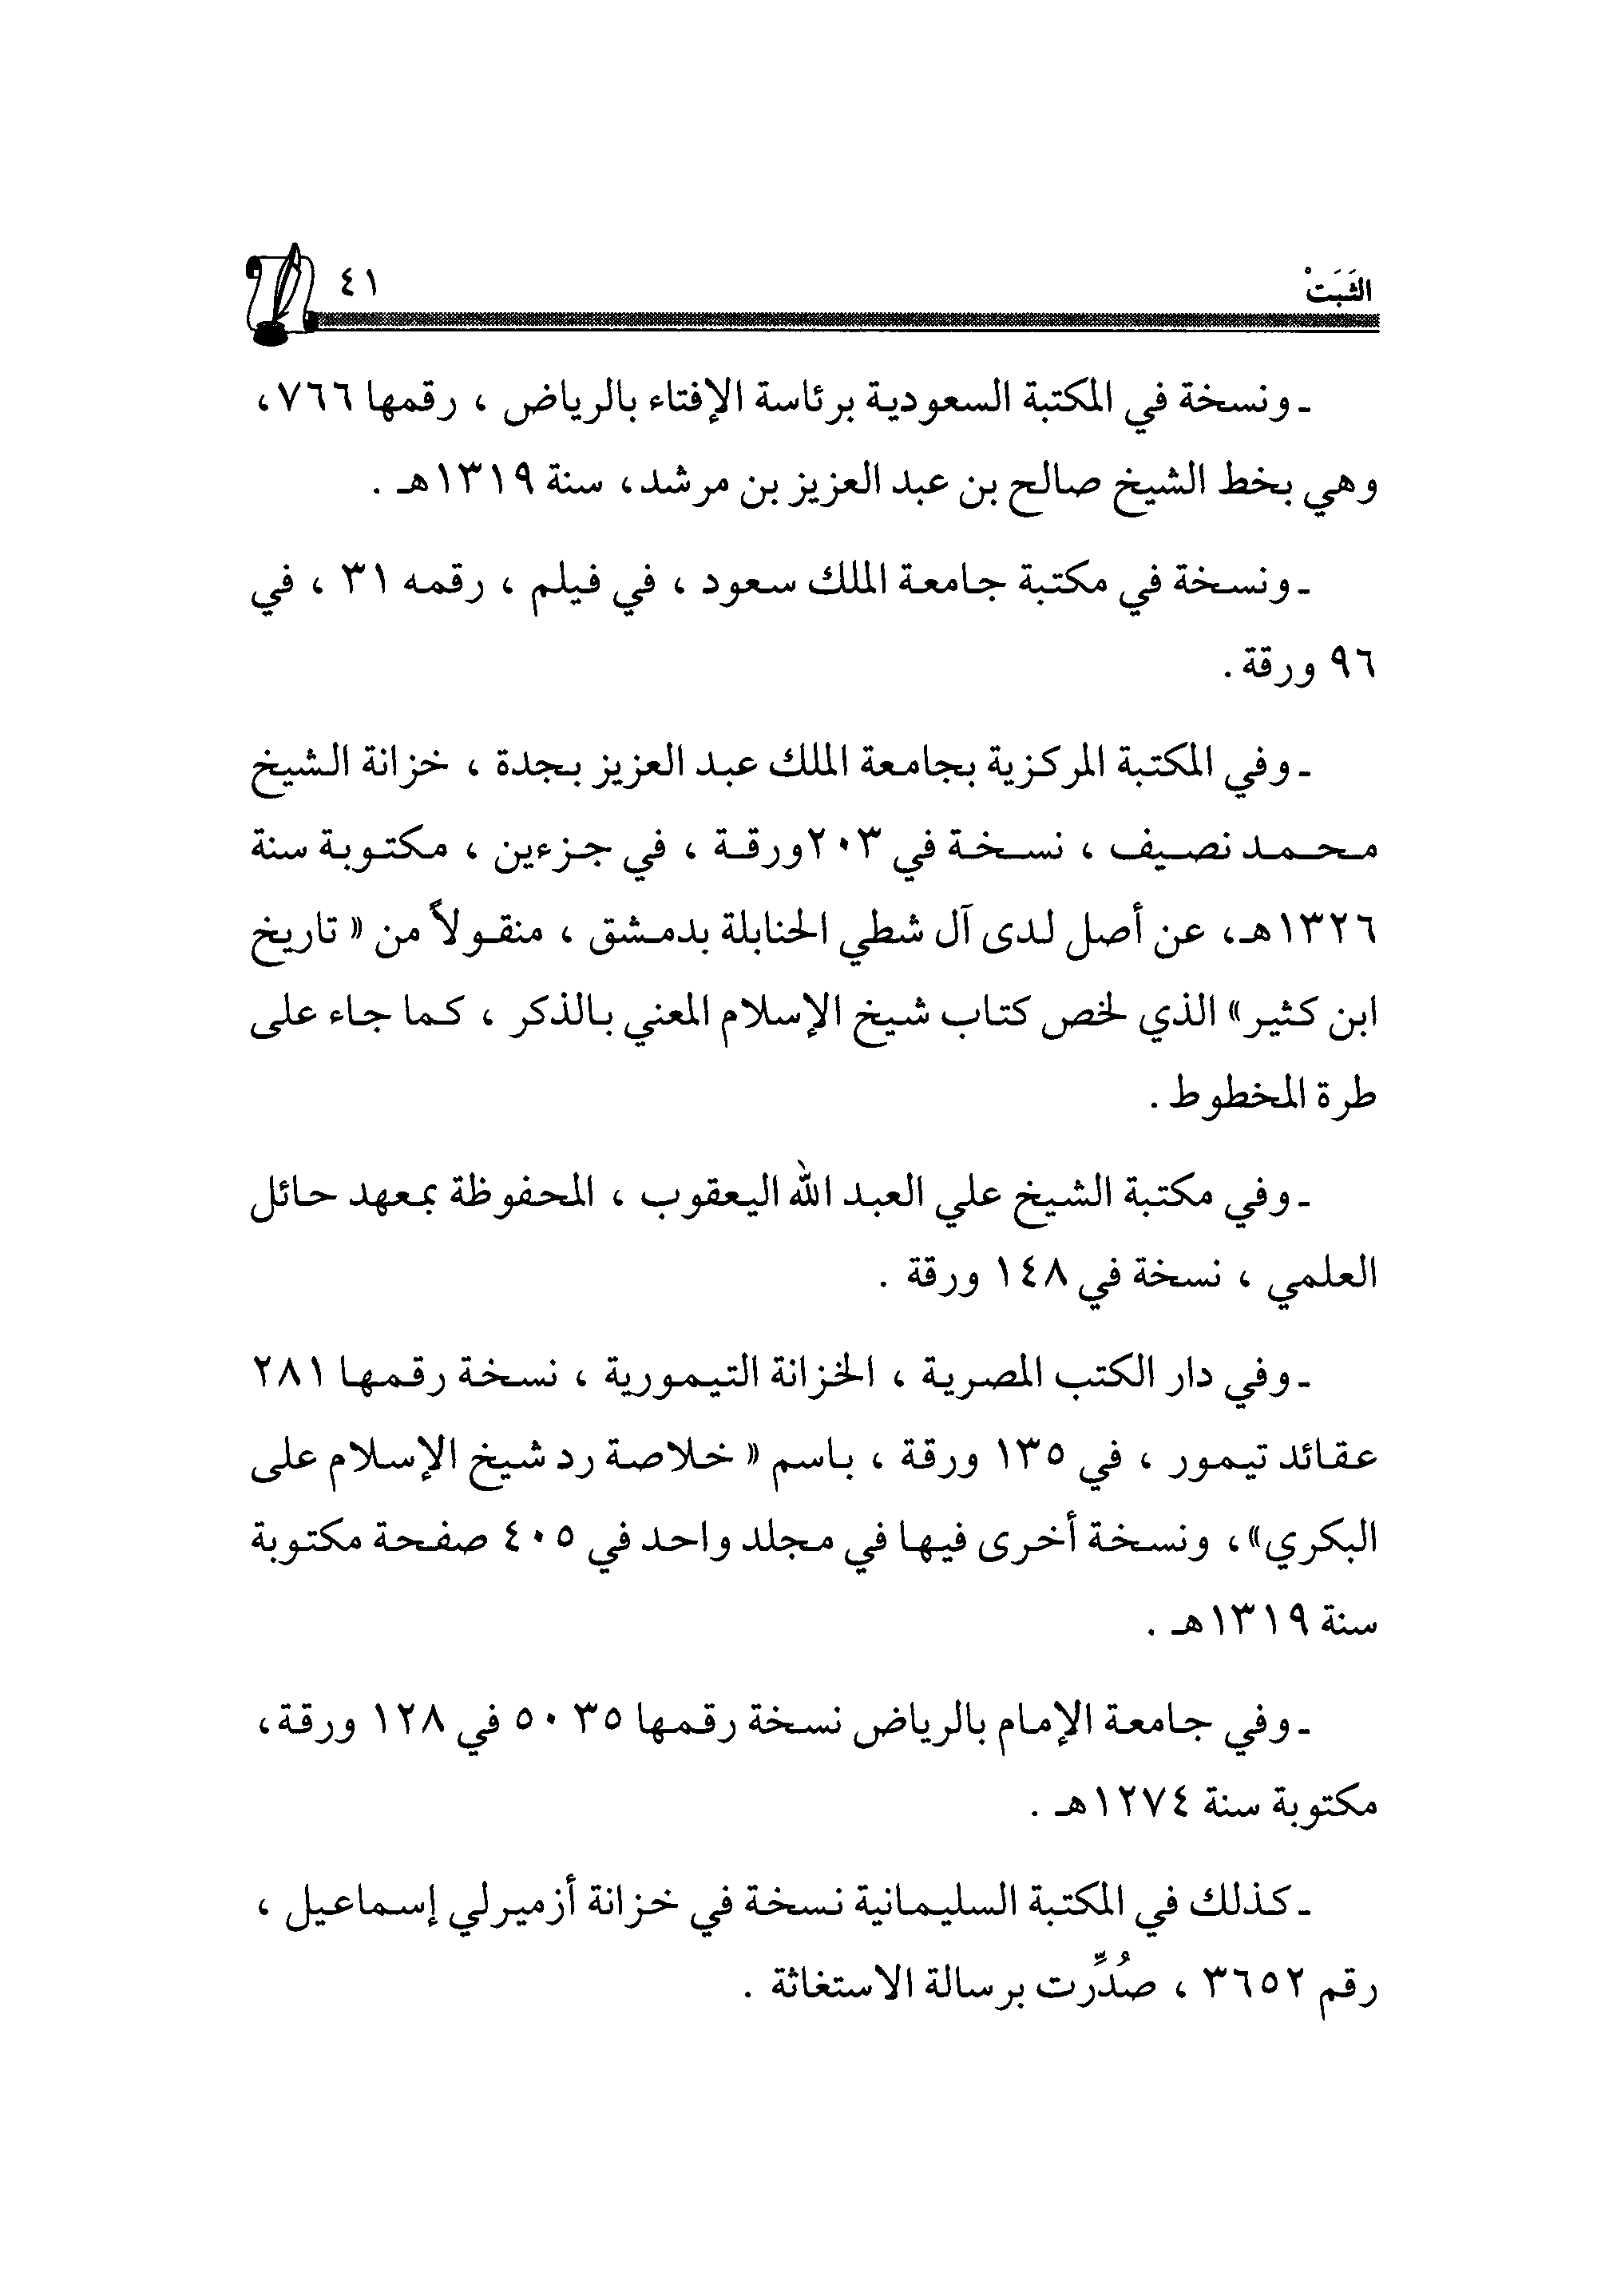 الثَبَتْ ٤١
ـ ونسخة في المكتبة السعودية برئاسة الإفتاء بالرياض ، رقمها ٧٦٦،
وهي بخط الشيخ صالح بن عبد العزيز بن مرشد، سنة ١٣١٩هـ .
ـ ونسخة في مكتبة جامعة الملك سعود ، في فيلم ، رقمه ٣١ ، في
٩٦ ورقة .
ـ وفي المكتبة المركزية بجامعة الملك عبد العزيز بجدة ، خزانة الشيخ
محمد نصيف ، نسخة في ٢٠٣ورقة ، في جزءين ، مكتوبة سنة
١٣٢٦هـ، عن أصل لدى آل شطي الحنابلة بدمشق ، منقولاً من « تاريخ
ابن كثير» الذي لخص كتاب شيخ الإسلام المعني بالذكر ، كما جاء على
طرة المخطوط .
ـ وفي مكتبة الشيخ علي العبد الله اليعقوب ، المحفوظة بمعهد حائل
العلمي ، نسخة في ١٤٨ ورقة .
ـ وفي دار الكتب المصرية ، الخزانة التيمورية ، نسخة رقمها ٢٨١
عقائد تيمور ، في ١٣٥ ورقة ، باسم « خلاصة رد شيخ الإسلام على
البكري»، ونسخة أخرى فيها في مجلد واحد في ٤٠٥ صفحة مكتوبة
سنة ١٣١٩هـ .
ـ وفي جامعة الإمام بالرياض نسخة رقمها ٥٠٣٥ في ١٢٨ ورقة،
مكتوبة سنة ١٢٧٤هـ .
ـ كذلك في المكتبة السليمانية نسخة في خزانة أزميرلي إسماعيل ،
رقم ٣٦٥٢ ، صُدِّرت برسالة الاستغاثة .